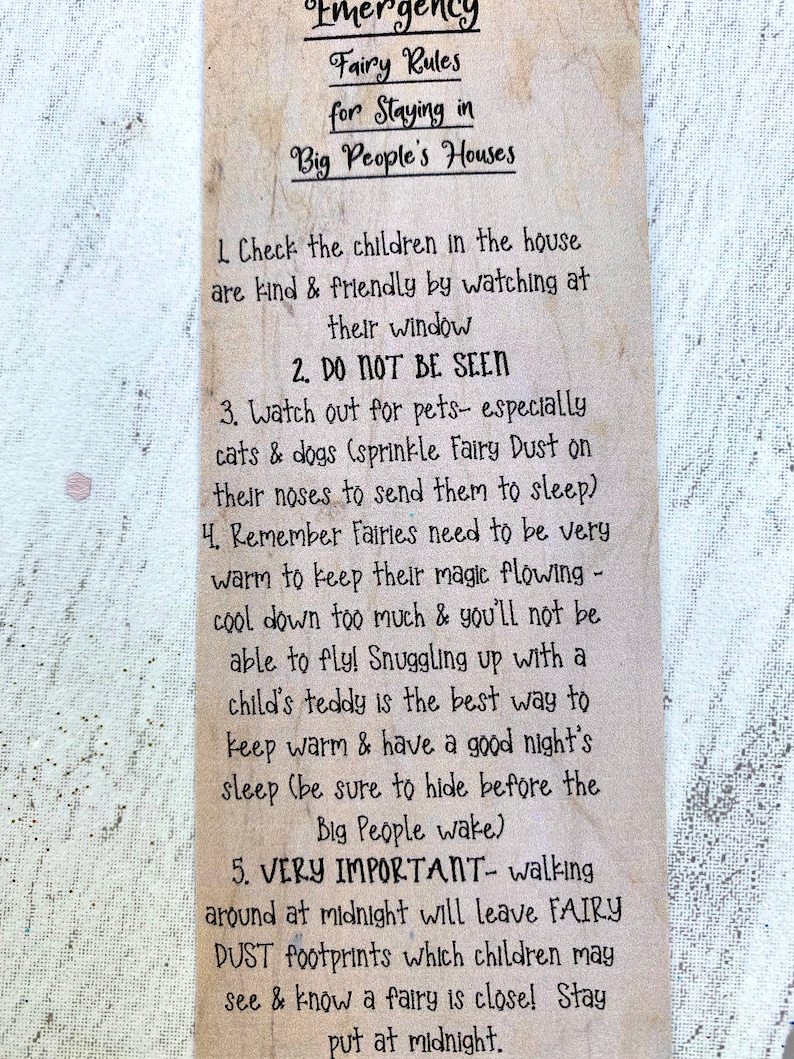 Emergency
Fairy Rules
for Staying in
Big People's Houses
1. Check the children in the house
are kind & friendly by watching at
their window
2. DO NOT BE SEEN
3. Watch out for pets- especially
cats & dogs (sprinkle Fairy Dust on
their noses to send them to sleep)
4. Remember Fairies need to be very
warm to keep their magic flowing -
cool down too much & you'll not be
able to fly! Snuggling up with a
child's teddy is the best way to
keep warm & have a good night's
sleep (be sure to hide before the
Big People wake)
5. VERY IMPORTANT- walking
around at midnight will leave FAIRY
DUST footprints which children may
see & know a fairy is close! Stay
put at midnight.